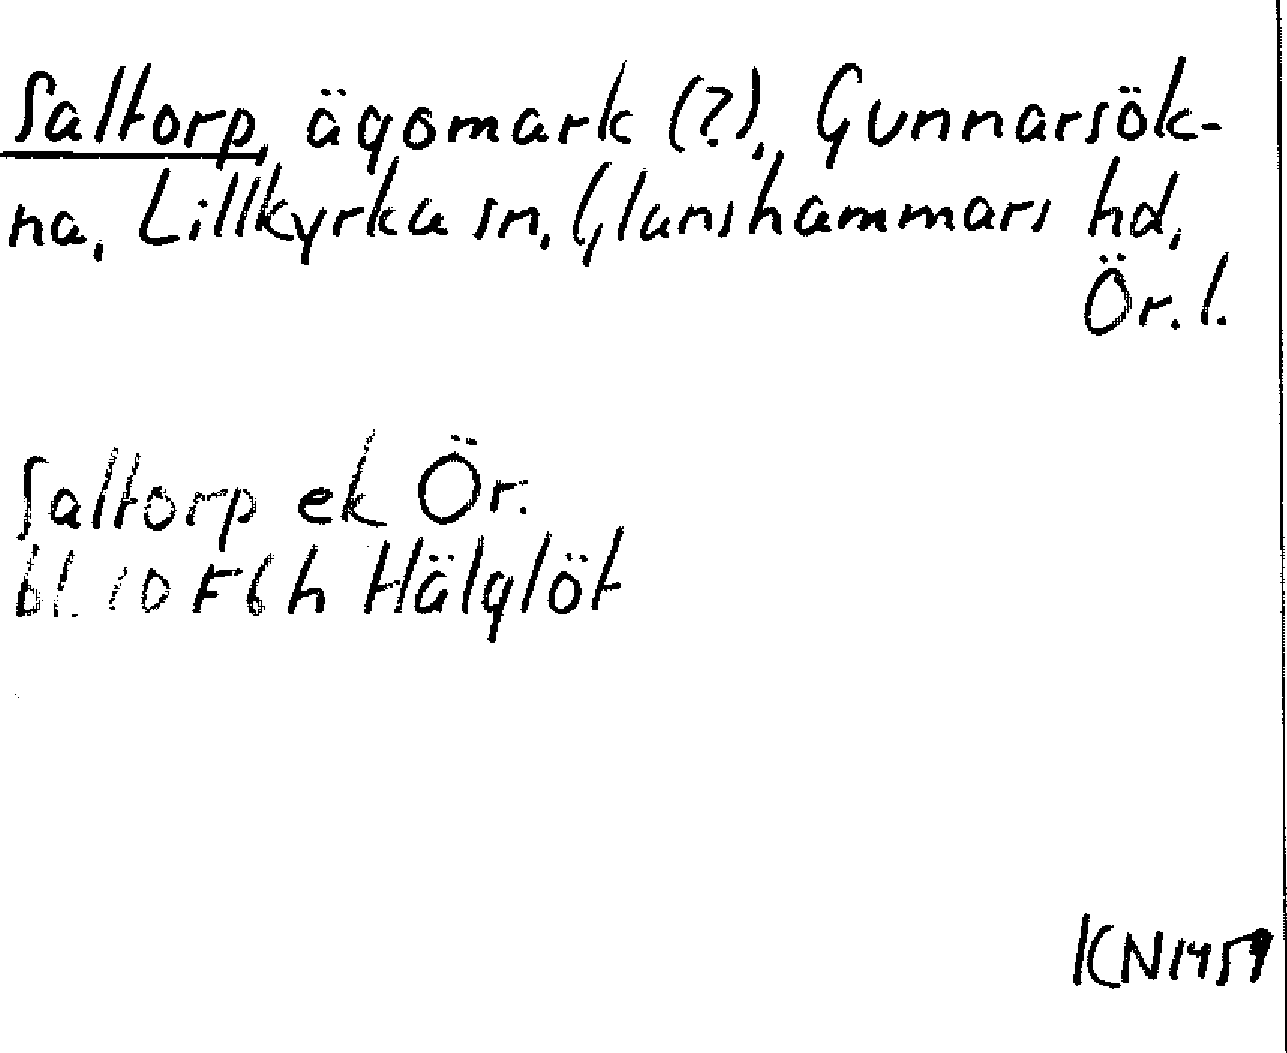 Saltorp, ägomark (?), Gunnarsök-
na, Lillkyrka sn, Glanshammars hd,
Ör. l.
Saltorp ek Ör.
bl. 10 F 6 h Hälglöt
KCN 1459